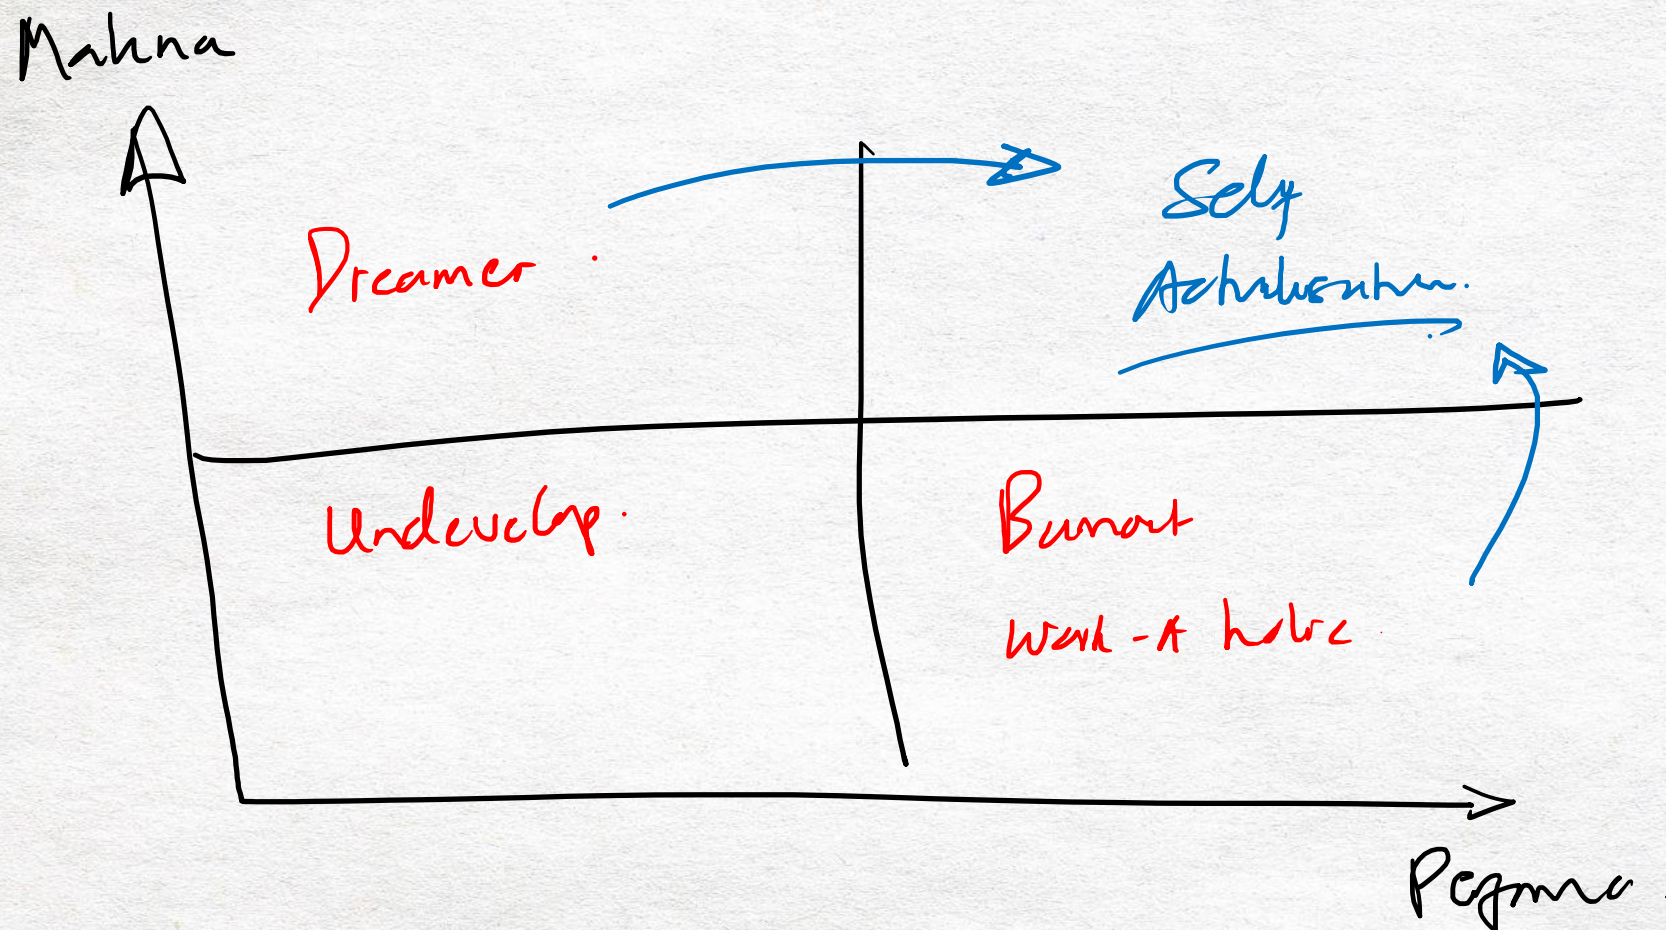 Makna
Dreamer
Self
Actualisation.
Undevelop.
Burnout
Work-A holic